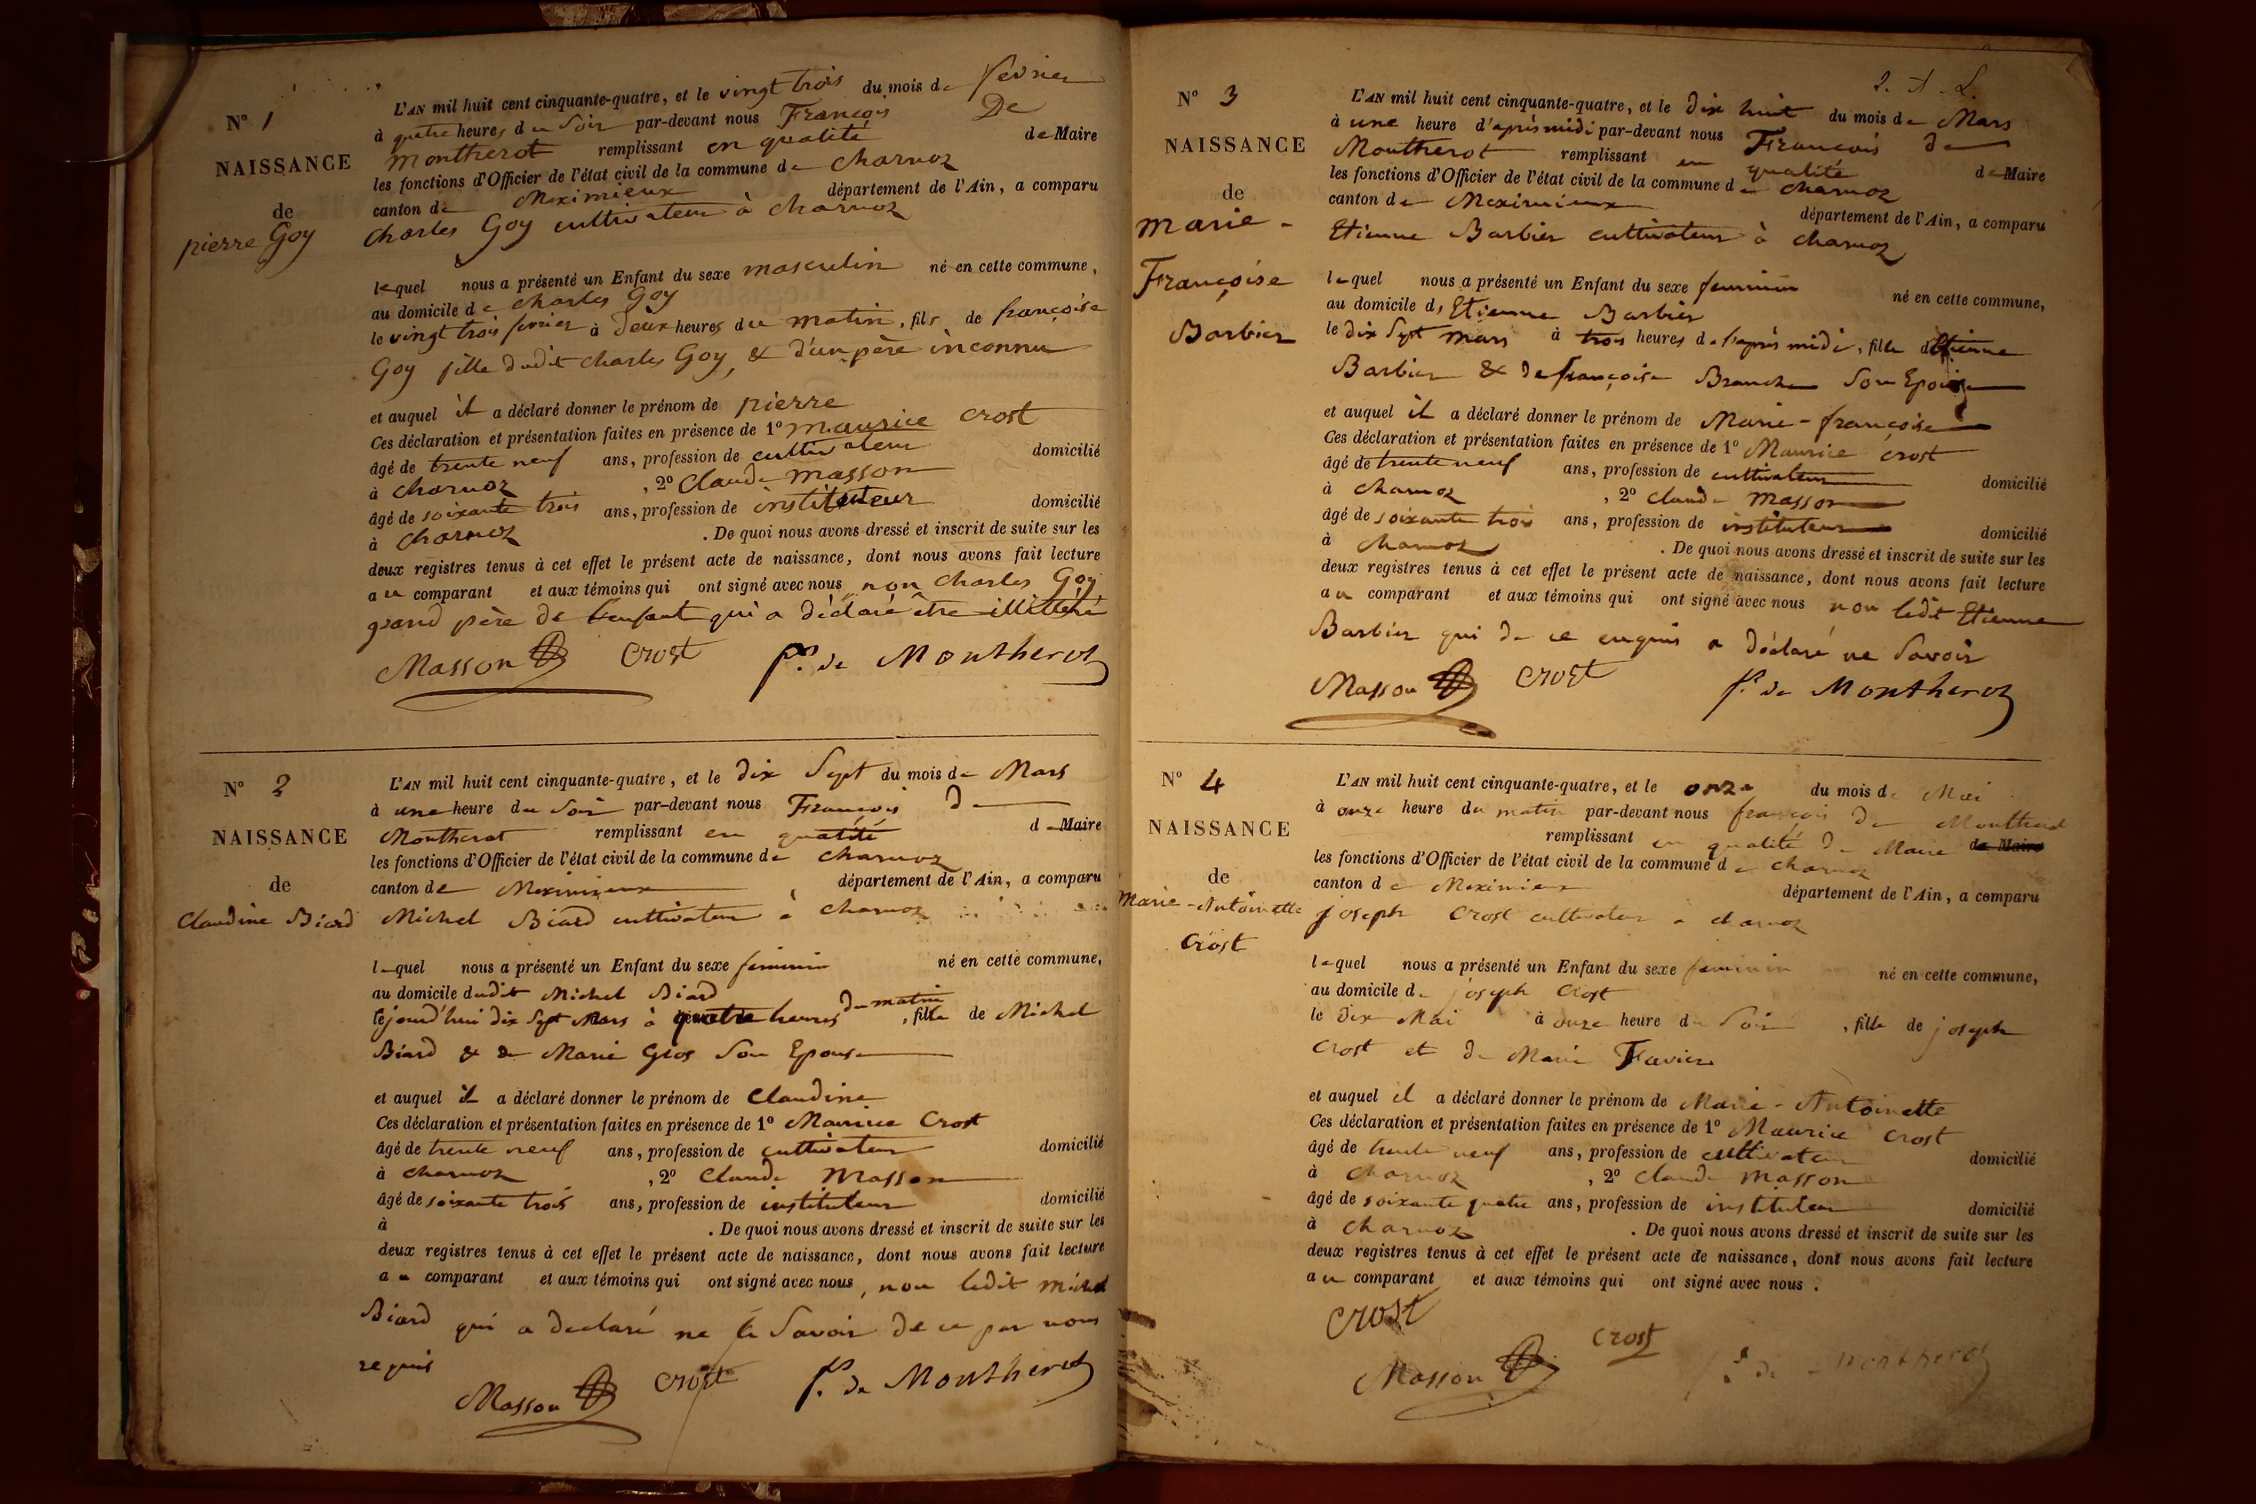 N° 1
NAISSANCE
de
pierre Goy
L'AN mil huit cent cinquante-quatre, et le vingt trois du mois de février
à quatre heures du Soir par-devant nous François De
Montherot remplissant en qualité de Maire
les fonctions d'Officier de l'état civil de la commune de charnoz
canton de Meximieux département de l'Ain, a comparu
Charles Goy cultivateur à charnoz
lequel nous a présenté un Enfant du sexe masculin né en cette commune,
au domicile de charles Goy
le vingt trois fevrier à deux heures du matin, fils de françoise
Goy fille dudit charles Goy, & d'un père inconnu
et auquel il a déclaré donner le prénom de pierre
Ces déclaration et présentation faites en présence de 1° maurice crost
âgé de trente neuf ans, profession de cultivateur domicilié
à charnoz, 2° claude masson
âgé de soixante trois ans, profession de instituteur domicilié
à charnoz. De quoi nous avons dressé et inscrit de suite sur les
deux registres tenus à cet effet le présent acte de naissance, dont nous avons fait lecture
au comparant et aux témoins qui ont signé avec nous non charles Goy
grand père de l'enfant qui a déclaré être illittéré
Masson crost f.ois de Montherot
N° 2
NAISSANCE
de
Claudine Biard
L'AN mil huit cent cinquante-quatre, et le dix Sept du mois de Mars
à une heure du Soir par-devant nous François de
Montherot remplissant en qualité de Maire
les fonctions d'Officier de l'état civil de la commune de charnoz
canton de Meximieux département de l'Ain, a comparu
Michel Biard cultivateur à charnoz
lequel nous a présenté un Enfant du sexe feminin né en cette commune,
au domicile dudit Michel Biard
cejourd'hui dix Sept Mars à quatre heures du matin, fille de Michel
Biard & de Marie Gros Son Epouse
et auquel il a déclaré donner le prénom de Claudine
Ces déclaration et présentation faites en présence de 1° Maurice Crost
âgé de trente neuf ans, profession de cultivateur domicilié
à charnoz, 2° Claude Masson
âgé de soixante trois ans, profession de instituteur domicilié
à . De quoi nous avons dressé et inscrit de suite sur les
deux registres tenus à cet effet le présent acte de naissance, dont nous avons fait lecture
au comparant et aux témoins qui ont signé avec nous, non ledit michel
Biard qui a declaré ne le Savoir de ce par nous
requis
Masson crost f.ois de Montherot
N° 3
NAISSANCE
de
marie -
Françoise
Barbier
L'AN mil huit cent cinquante-quatre, et le dix huit du mois de Mars
à une heure d'après midi par-devant nous François de
Montherot remplissant en qualité de Maire
les fonctions d'Officier de l'état civil de la commune de charnoz
canton de Meximieux département de l'Ain, a comparu
Etienne Barbier cultivateur à charnoz
lequel nous a présenté un Enfant du sexe feminin né en cette commune,
au domicile d, Etienne Barbier
le dix Sept mars à trois heures de l'après midi, fille d'Etienne
Barbier & de françoise Son Epouse
et auquel il a déclaré donner le prénom de Marie - françoise
Ces déclaration et présentation faites en présence de 1° Maurice crost
âgé de trente neuf ans, profession de cultivateur domicilié
à charnoz, 2° claude masson
âgé de soixante trois ans, profession de instituteur domicilié
à charnoz. De quoi nous avons dressé et inscrit de suite sur les
deux registres tenus à cet effet le présent acte de naissance, dont nous avons fait lecture
au comparant et aux témoins qui ont signé avec nous non ledit Etienne
Barbier qui de ce enquis a déclaré ne Savoir
Masson crost f.ois de Montherot
N° 4
NAISSANCE
de
Marie - Antoinette
Crost
L'AN mil huit cent cinquante-quatre, et le onze du mois de Mai
à onze heure du matin par-devant nous françois de Montherot
remplissant en qualité de Maire de Maire
les fonctions d'Officier de l'état civil de la commune de charnoz
canton de Meximieux département de l'Ain, a comparu
joseph Crost cultivateur à charnoz
lequel nous a présenté un Enfant du sexe feminin né en cette commune,
au domicile de joseph Crost
le dix Mai à onze heure du Soir, fille de joseph
Crost et de Marie Favier
et auquel il a déclaré donner le prénom de Marie - Antoinette
Ces déclaration et présentation faites en présence de 1° Maurice crost
âgé de trente neuf ans, profession de cultivateur domicilié
à charnoz, 2° claude masson
âgé de soixante quatre ans, profession de instituteur domicilié
à charnoz. De quoi nous avons dressé et inscrit de suite sur les
deux registres tenus à cet effet le présent acte de naissance, dont nous avons fait lecture
au comparant et aux témoins qui ont signé avec nous.
crost
Masson crost f.ois de Montherot